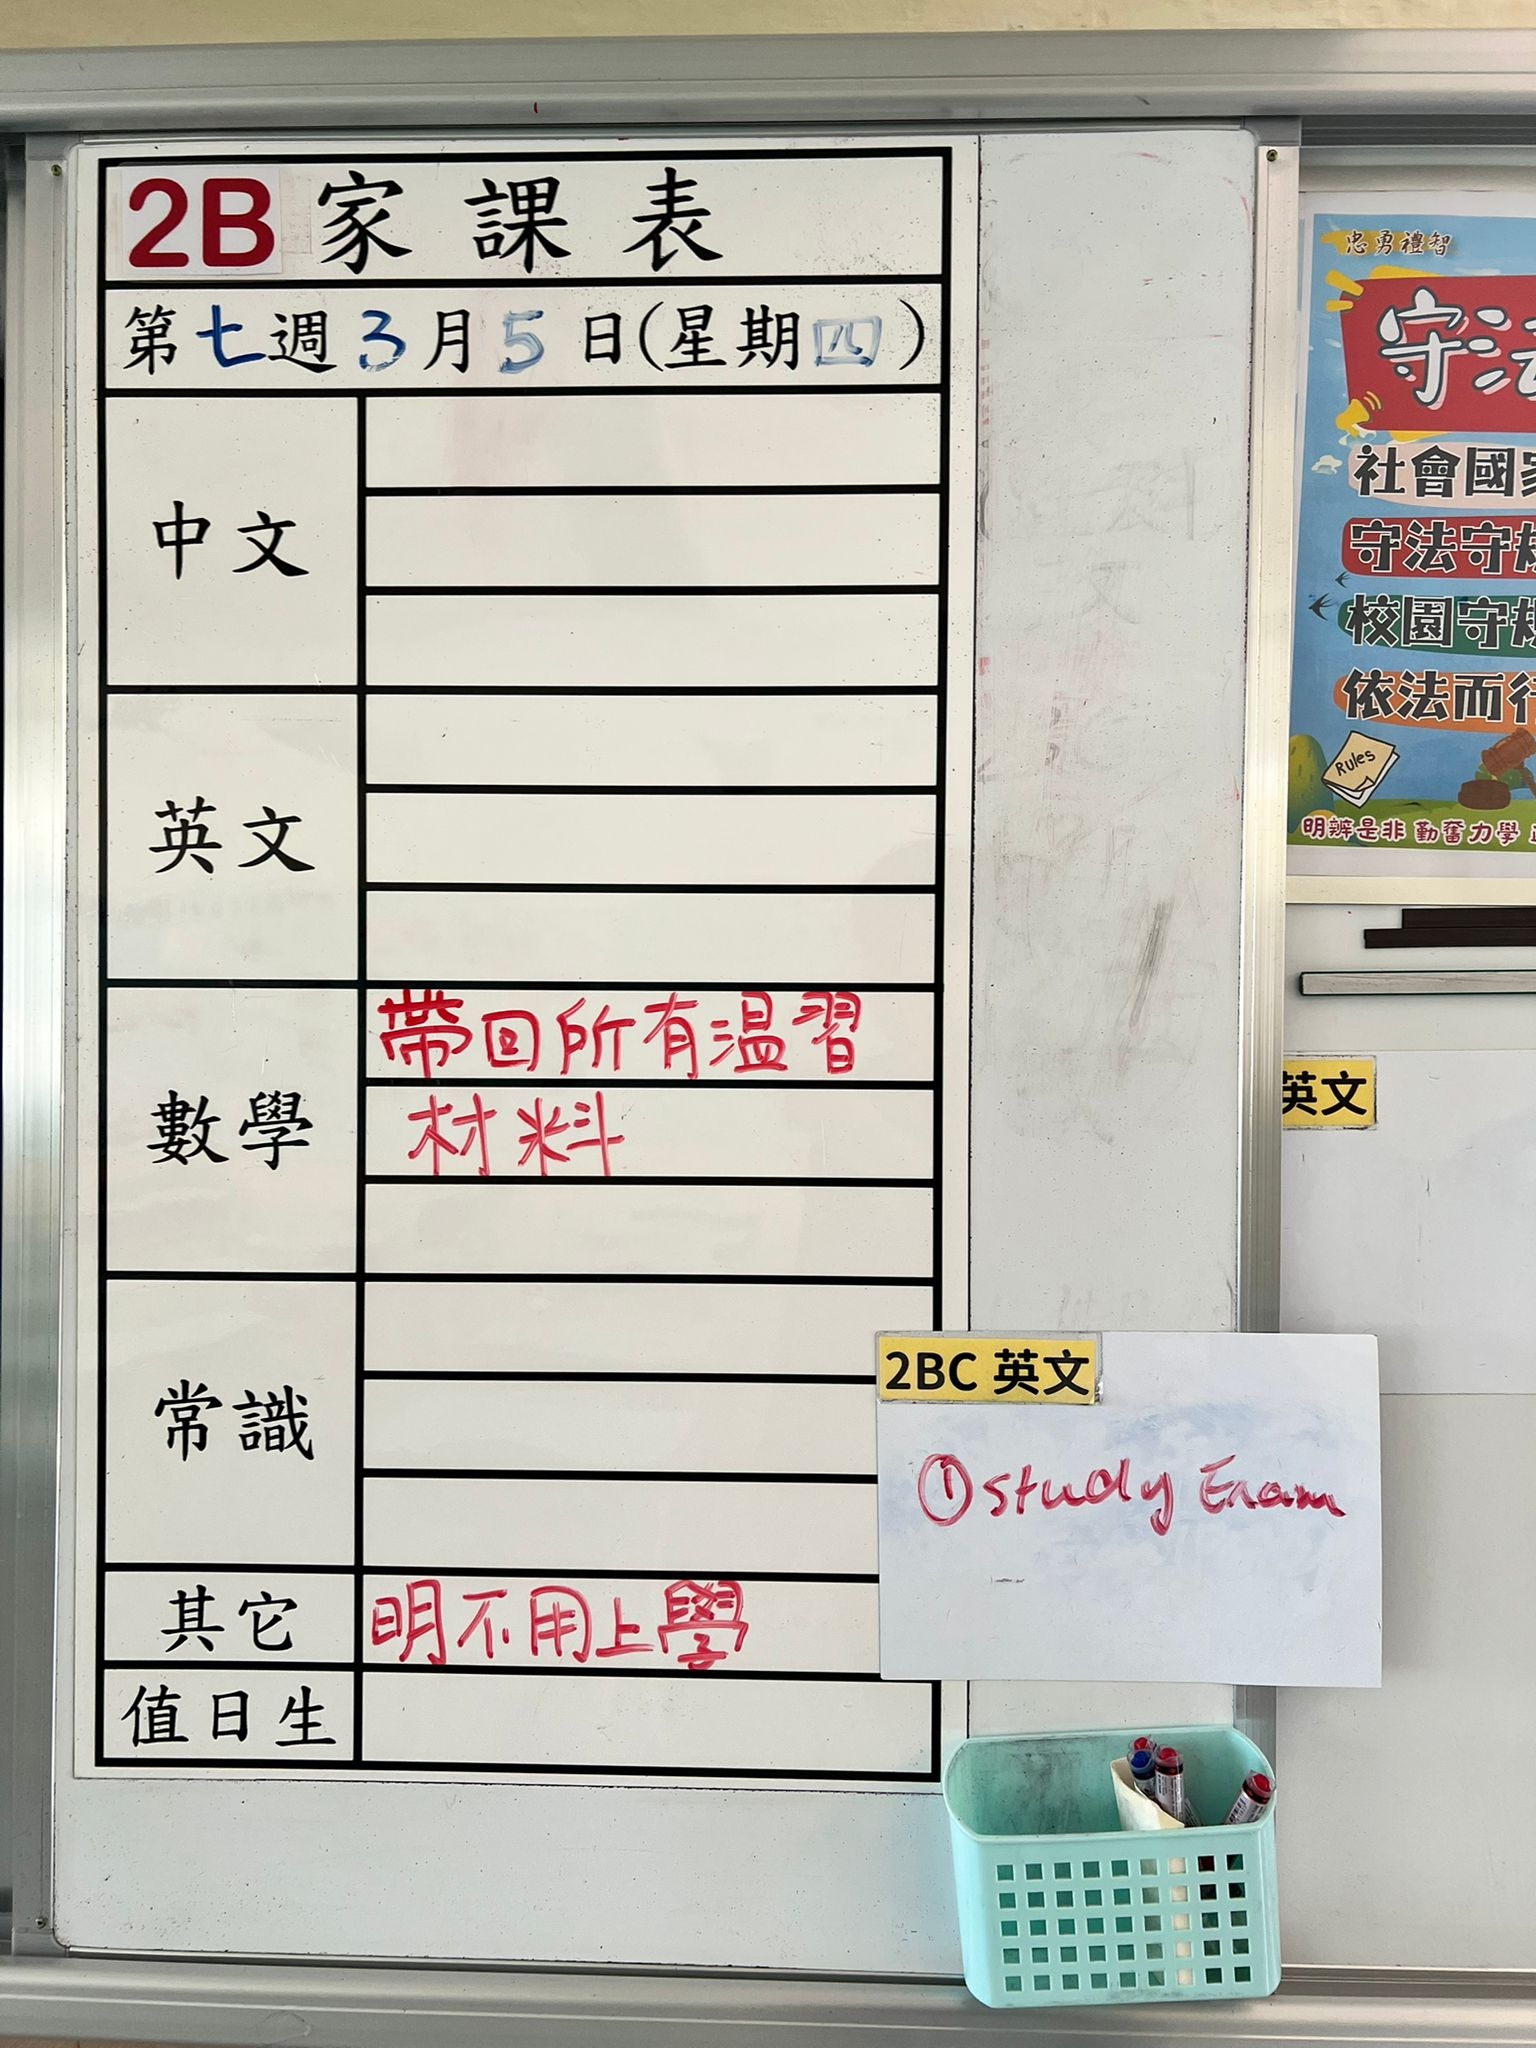 2B 家課表
第七週3月5日(星期四)
中文
英文
數學
帶回所有溫習
材料
常識
其它
明不用上學
值日生
2BC 英文
①study Exam
忠勇禮智
守法
社會國家
守法守規
校園守規
依法而行
Rules
明辨是非 勤奮力學
英文